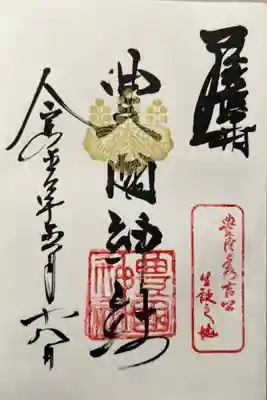 尾張中村
豊臣秀吉公
生誕之地
豊國神社
豊國神社
令和 年 月十八日